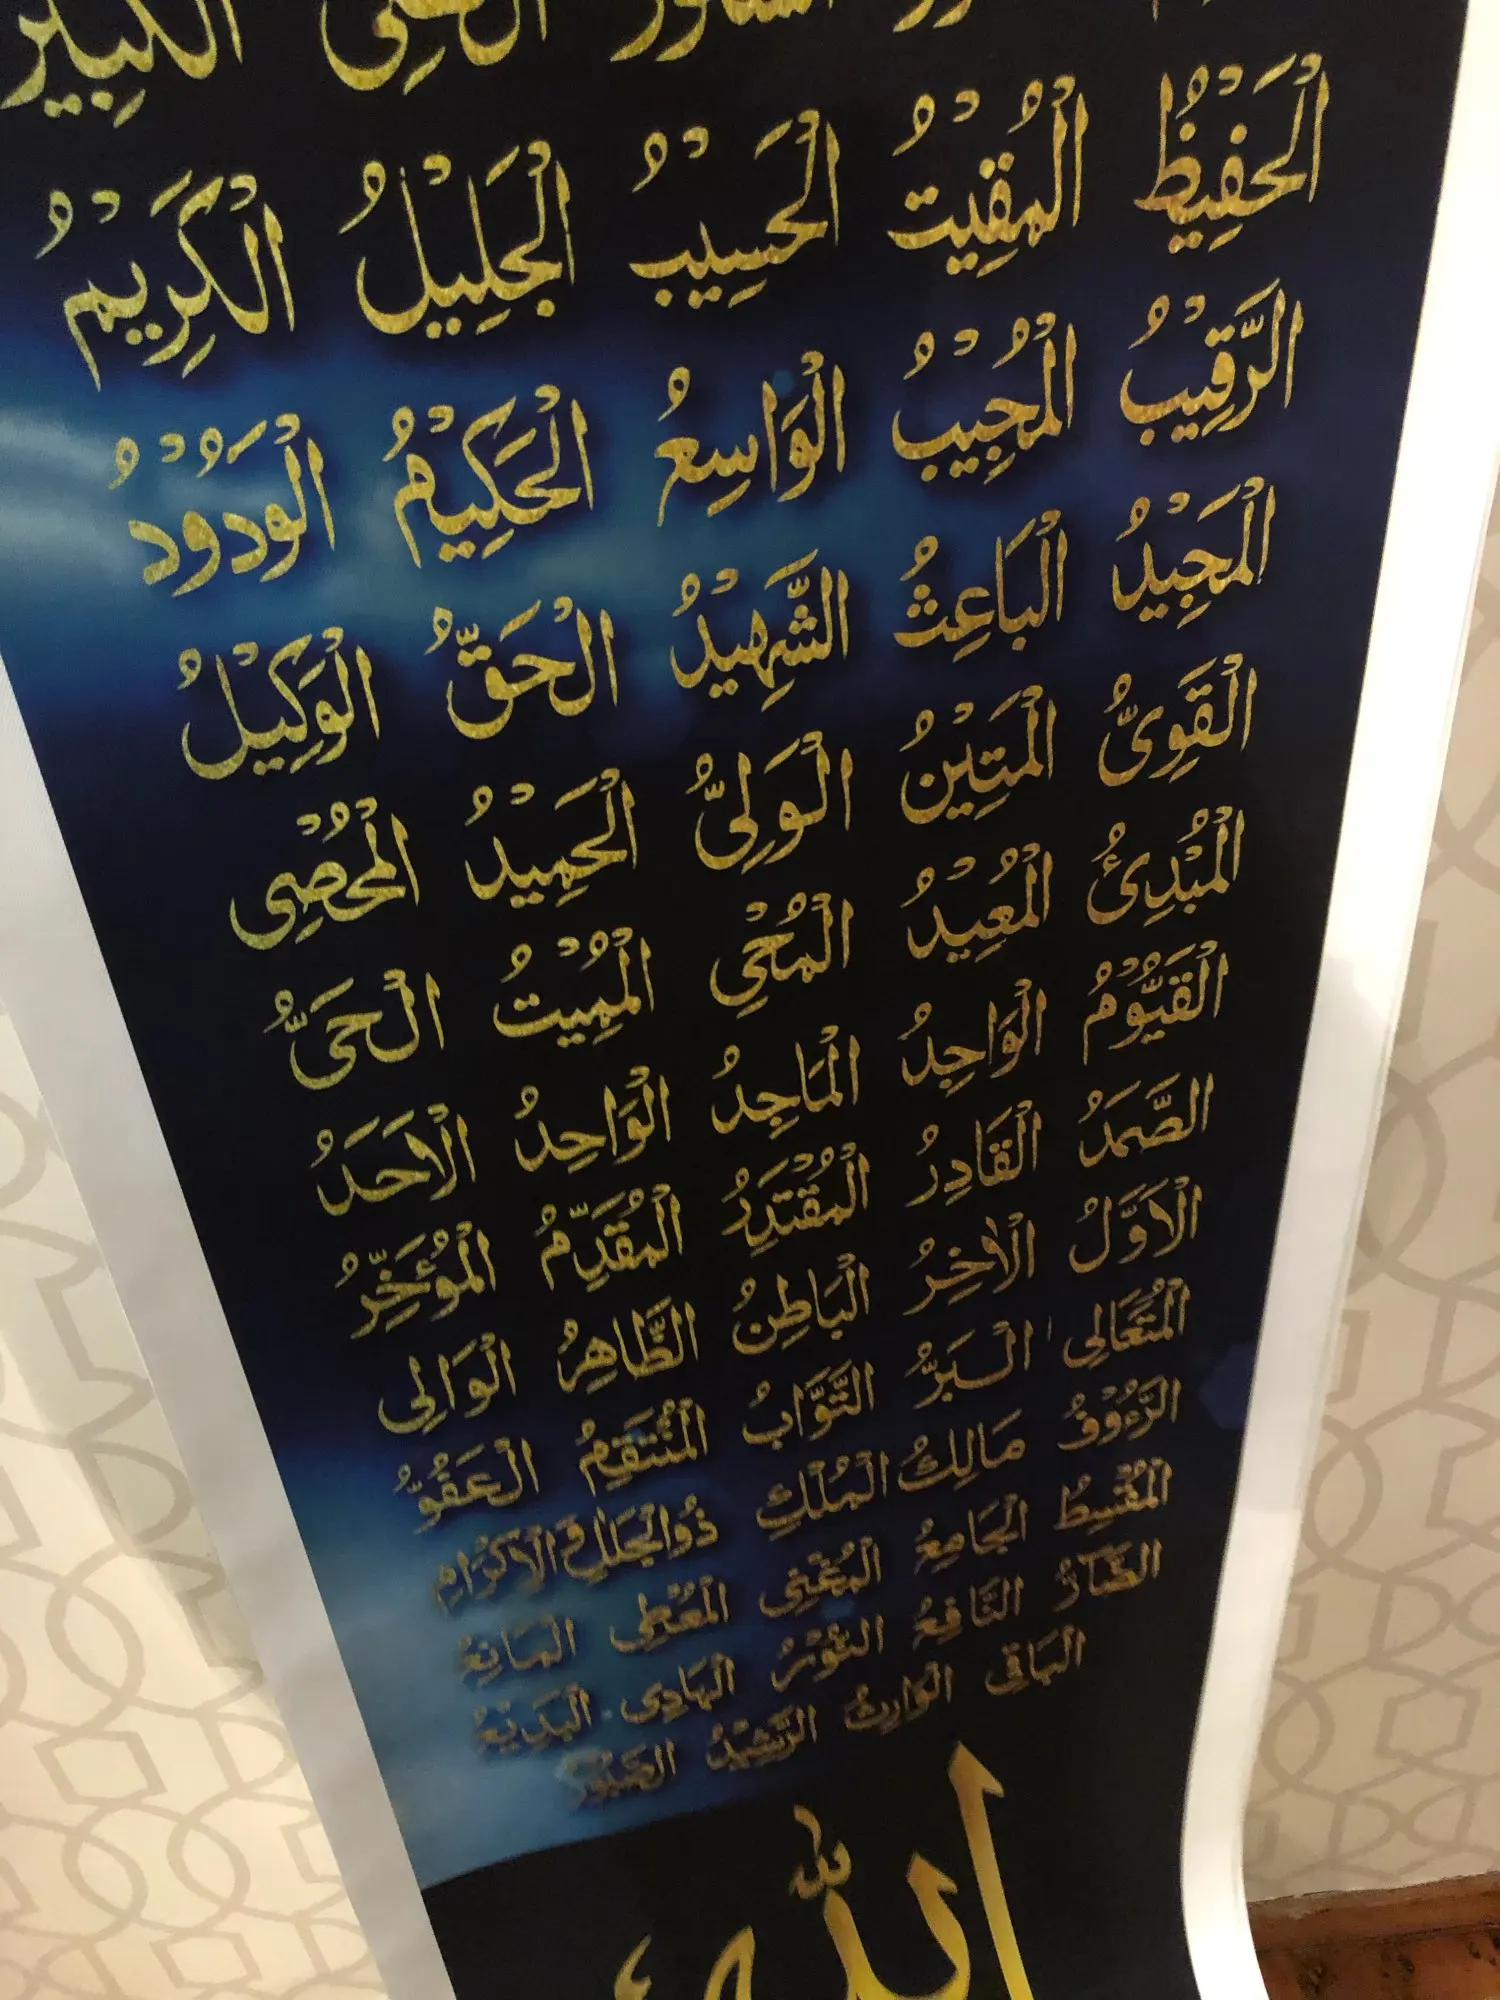 الشَّكُوْرُ الْعَلِىُّ الْكَبِيْرُ
الْحَفِيْظُ الْمُقِيْتُ الْحَسِيْبُ الْجَلِيْلُ الْكَرِيْمُ
الرَّقِيْبُ الْمُجِيْبُ الْوَاسِعُ الْحَكِيْمُ الْوَدُوْدُ
الْمَجِيْدُ الْبَاعِثُ الشَّهِيْدُ الْحَقُّ الْوَكِيْلُ
الْقَوِىُّ الْمَتِيْنُ الْوَلِىُّ الْحَمِيْدُ الْمُحْصِى
الْمُبْدِئُ الْمُعِيْدُ الْمُحْىِ الْمُمِيْتُ الْحَىُّ
الْقَيُّوْمُ الْوَاجِدُ الْمَاجِدُ الْوَاحِدُ الْاَحَدُ
الصَّمَدُ الْقَادِرُ الْمُقْتَدِرُ الْمُقَدِّمُ الْمُؤَخِّرُ
الْاَوَّلُ الْاٰخِرُ الْبَاطِنُ الظَّاهِرُ الْوَالِى
الْمُتَعَالِى الْبَرُّ التَّوَّابُ الْمُنْتَقِمُ الْعَفُوُّ
الرَّءُوْفُ مَالِكُ الْمُلْكِ ذُوالْجَلَلِ وَالْاِكْرَامِ
الْمُقْسِطُ الْجَامِعُ الْمُغْنِى الْمُعْطِى الْمَانِعُ
الضَّآرُّ النَّافِعُ النُّوْرُ الْهَادِى الْبَدِيْعُ
الْبَاقِى الْوَارِثُ الرَّشِيْدُ الصَّبُوْرُ
الله